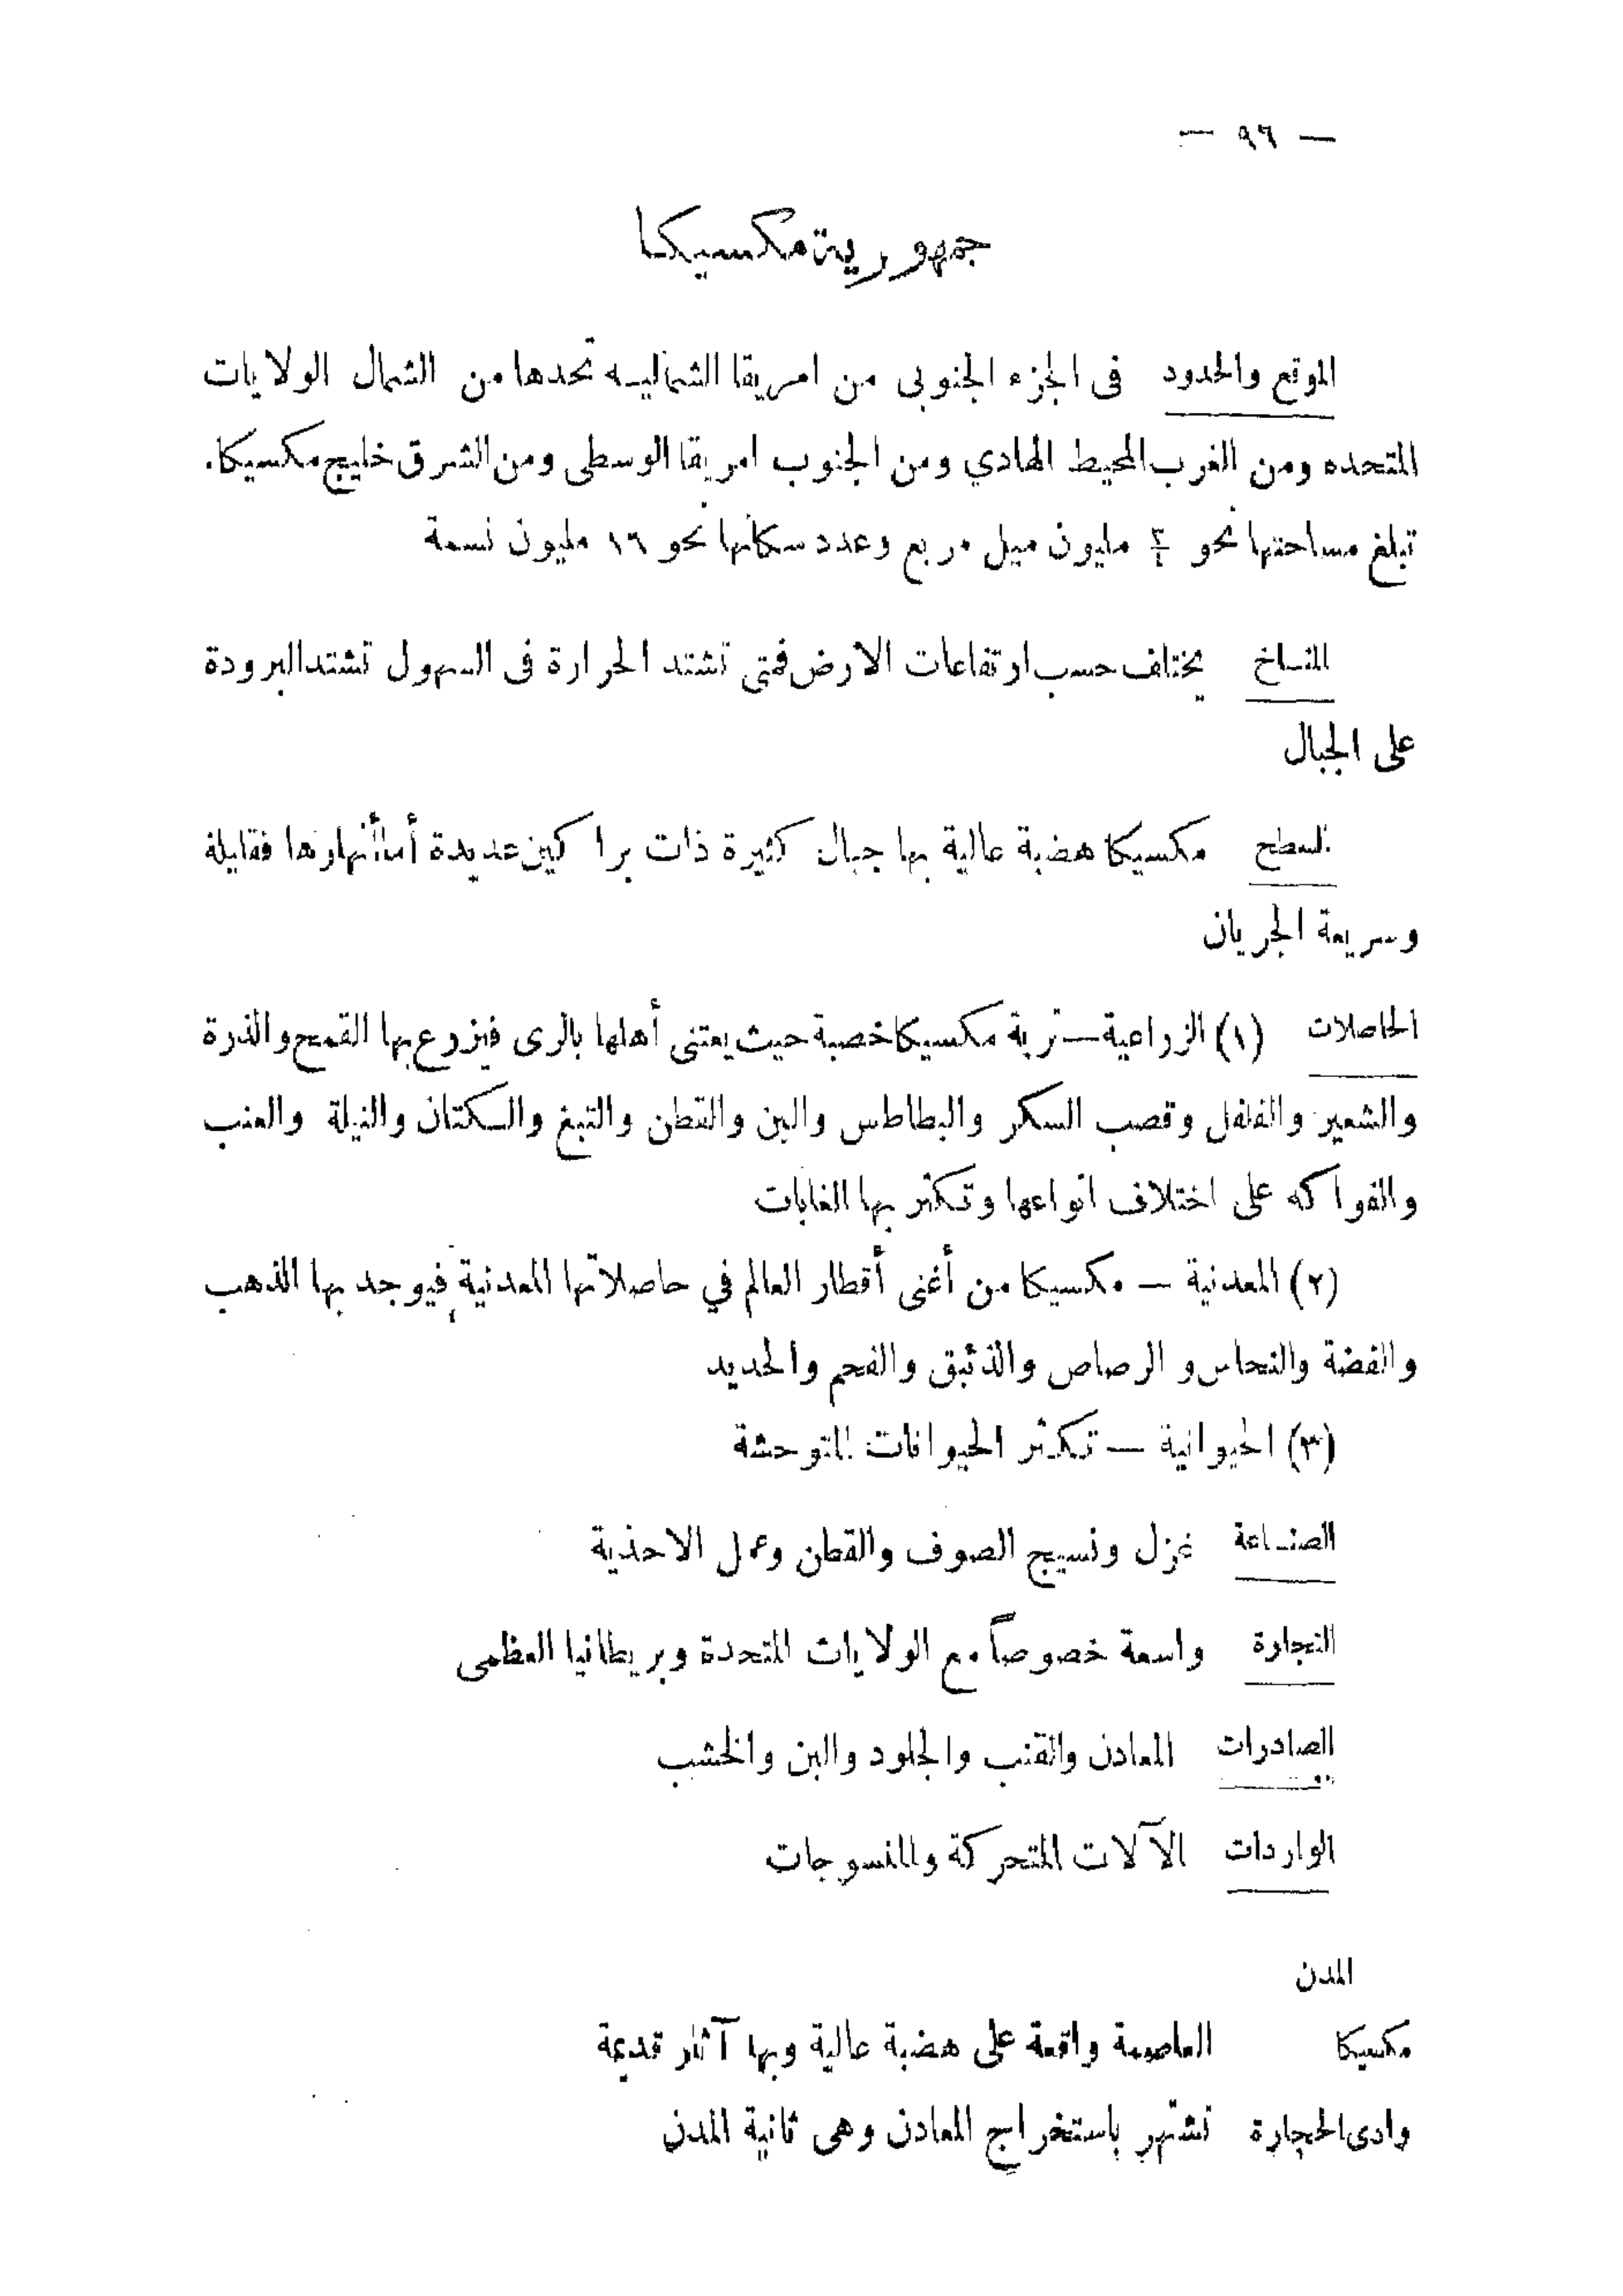 — ٩٦ —
جمهورية مكسيكا
الموقع والحدود فى الجزء الجنوبى من امريقا الشماليه تحدها من الشمال الولايات
المتحده ومن الغرب المحيط الهادي ومن الجنوب امريقا الوسطى ومن الشرق خليج مكسيكا.
تبلغ مساحتها نحو مليون ميل مربع وعدد سكانها نحو ١٦ مليون نسمة
المناخ يختلف حسب ارتفاعات الارض فمتى تشتد الحرارة فى السهول تشتد البرودة
على الجبال
السطح مكسيكا هضبة عالية بها جبال كثيرة ذات براكين عديدة أما أنهارها فقليلة
وسريعة الجريان
الحاصلات (١) الزراعية — تربة مكسيكا خصبة حيث يعتنى أهلها بالرى فيزرع بها القمح والذرة
والشعير والفلفل وقصب السكر والبطاطس والبن والقطن والتبغ والكتان والنيلة والعنب
والفواكه على اختلاف انواعها وتكثر بها الغابات
(٢) المعدنية — مكسيكا من أغنى أقطار العالم في حاصلاتها المعدنية فيوجد بها الذهب
والفضة والنحاس و الرصاص والذئبق والفحم والحديد
(٣) الحيوانية — تكثر الحيوانات المتوحشة
الصناعة غزل ونسيج الصوف والقطن وعمل الاحذية
التجارة واسعة خصوصاً مع الولايات المتحدة وبريطانيا العظمى
الصادرات المعادن والقنب والجلود والبن والخشب
الواردات الآلات المتحركة والمنسوجات
المدن
مكسيكا العاصمة واقعة على هضبة عالية وبها آثار قديمة
وادى الحجارة تشتهر باستخراج المعادن وهى ثانية المدن